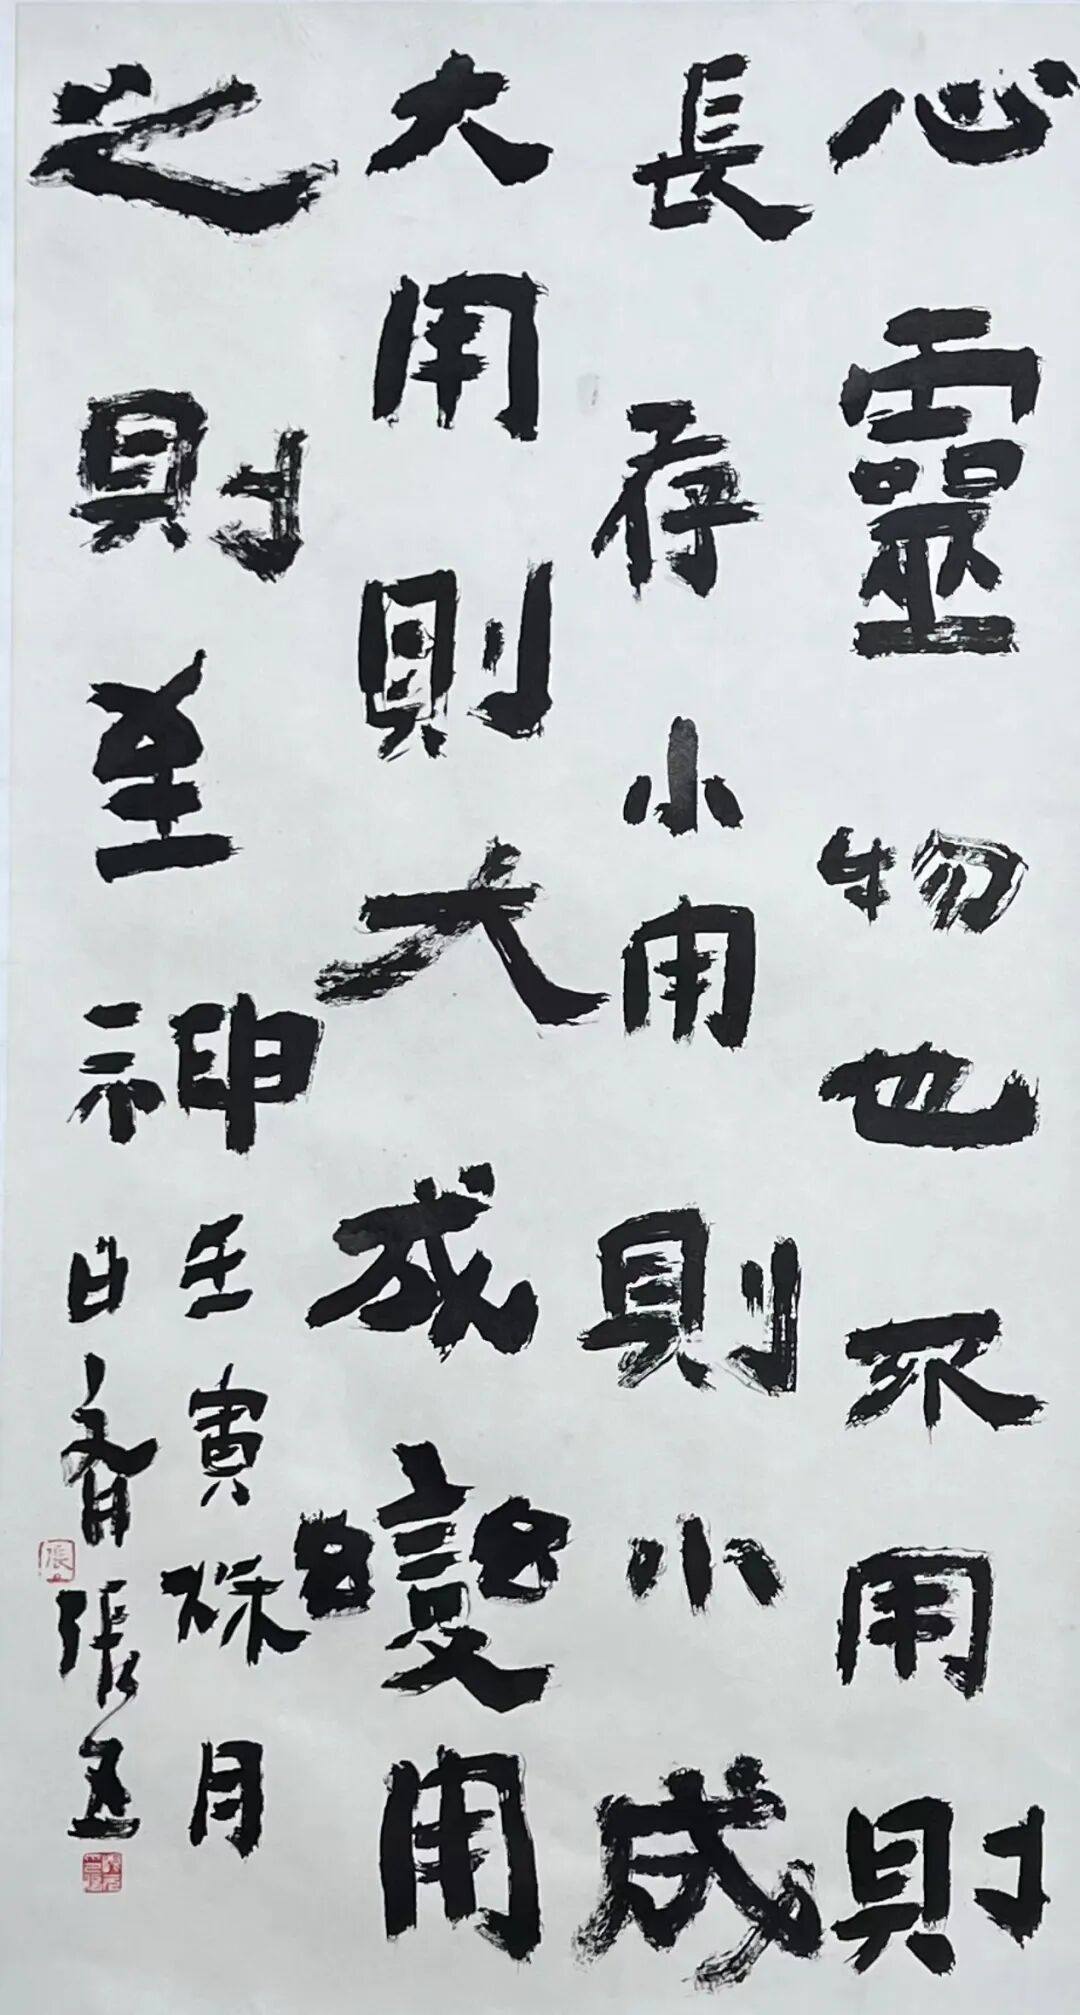 心靈物也不用則
長存小用則小成
大用則大成變用
之則至神
壬寅秌月
白齊張